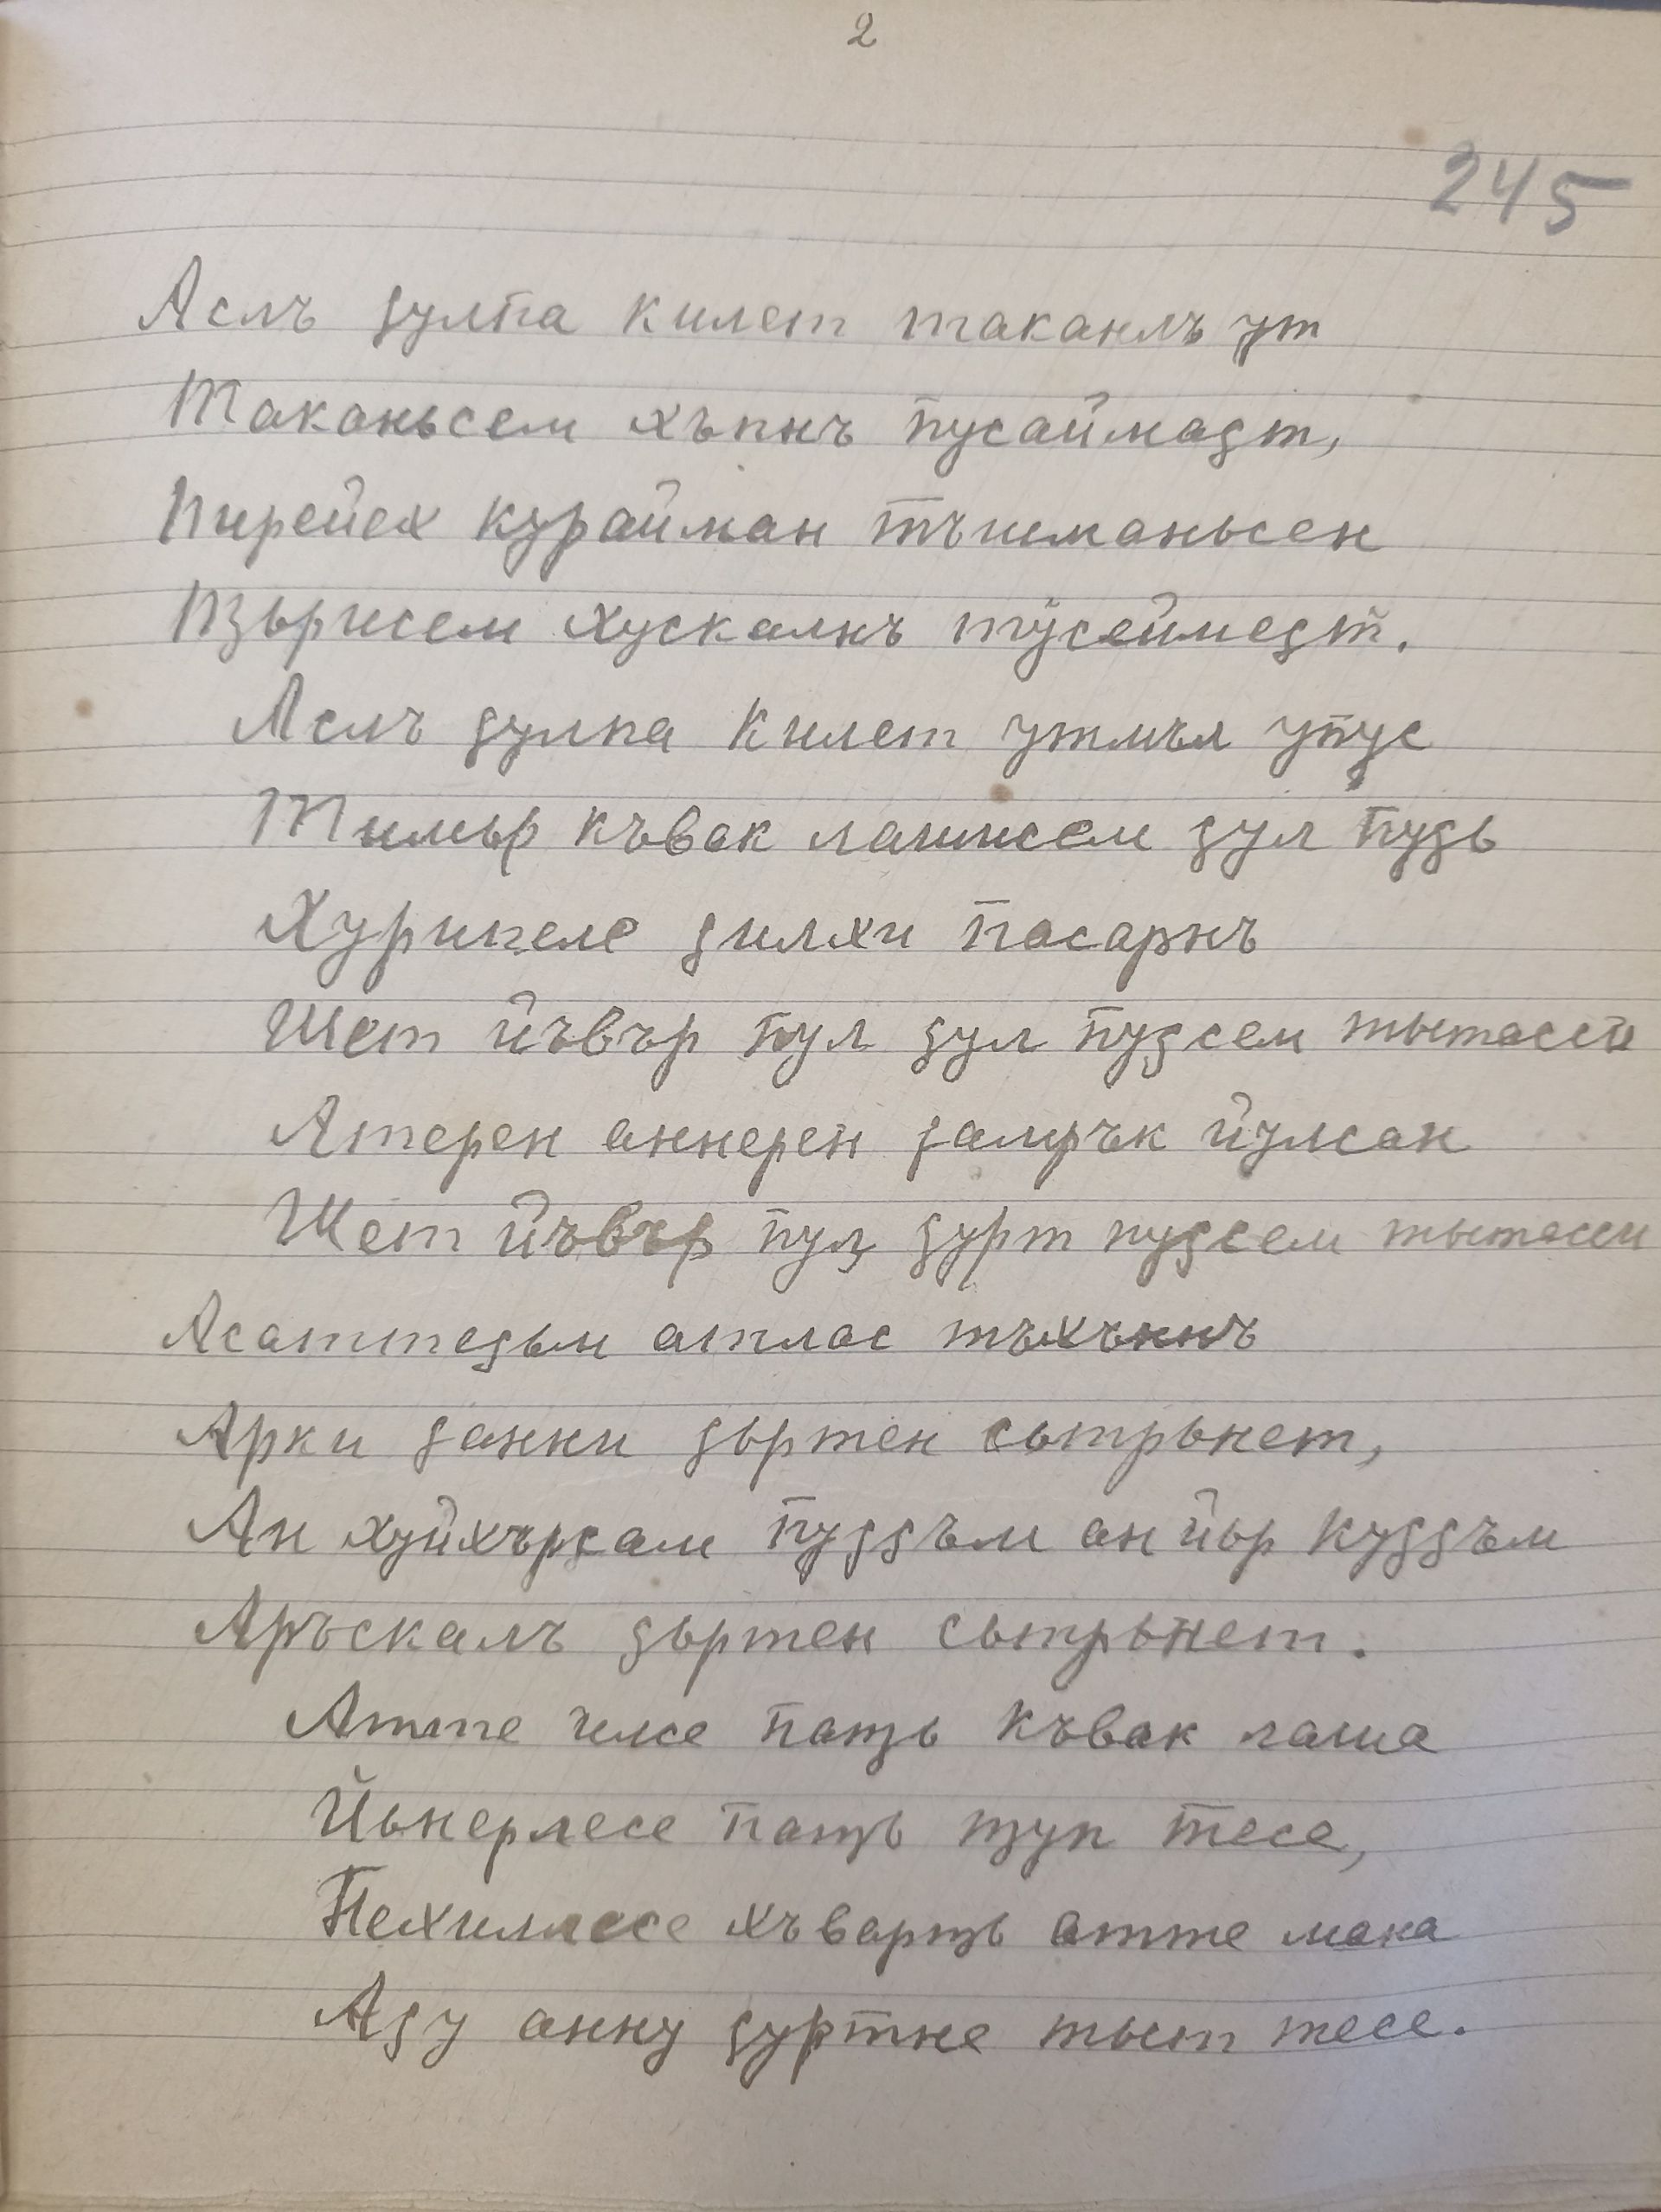 2
245
Аслъ ҫулпа килет таканлъ ут
Таканьсем хъпнъ пусаймаҫт,
Пирейех курайман тъшманьсен
Пӳърисем хускалнъ тӱсеймеҫт.
Аслъ ҫулпа килет утмъл упус
Тимьр къвак лашисем ҫул пуҫь
Хурипеле ҫилхи пасарнъ
Шет йъвър пул ҫул пуҫсем тытасси
Атерен аннерен ҫамрък йулсан
Шет йъвър пул ҫурт пуҫсем тытасси
Асаттеҫьм атлас тъхъннъ
Арки ҫанни ҫьртен сьтрьнет,
Ан хуйхърсам пуҫҫъм ан йьр куҫҫъм
Аръскалъ ҫьртен сьтрьнет.
Атте илсе патҙь къвак лаша
Йьнерлесе патҙь тҙуп тесе,
Пехиллесе хъвартҙь атте мана
Аҫу анну ҫуртне тыт тесе.